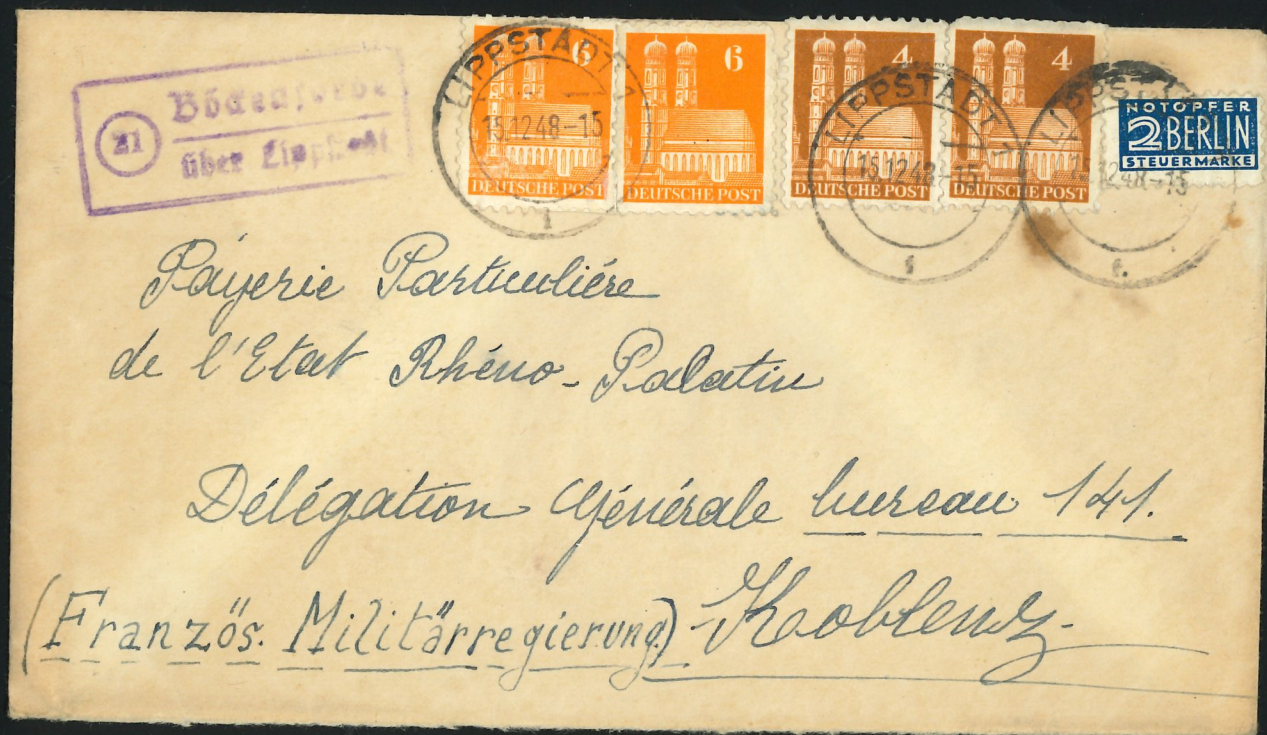 (21) Böckenförde
über Lippstadt
LIPPSTADT
15.12.48-15
LIPPSTADT
15.12.48-15
LIPPSTADT
15.12.48-15
6
DEUTSCHE POST
6
DEUTSCHE POST
4
DEUTSCHE POST
4
DEUTSCHE POST
NOTOPFER
2 BERLIN
STEUERMARKE
Payerie Particuliére
de l'Etat Rhéno-Palatin
Délégation Générale bureau 141.
(Französ. Militärregierung) Koblenz.